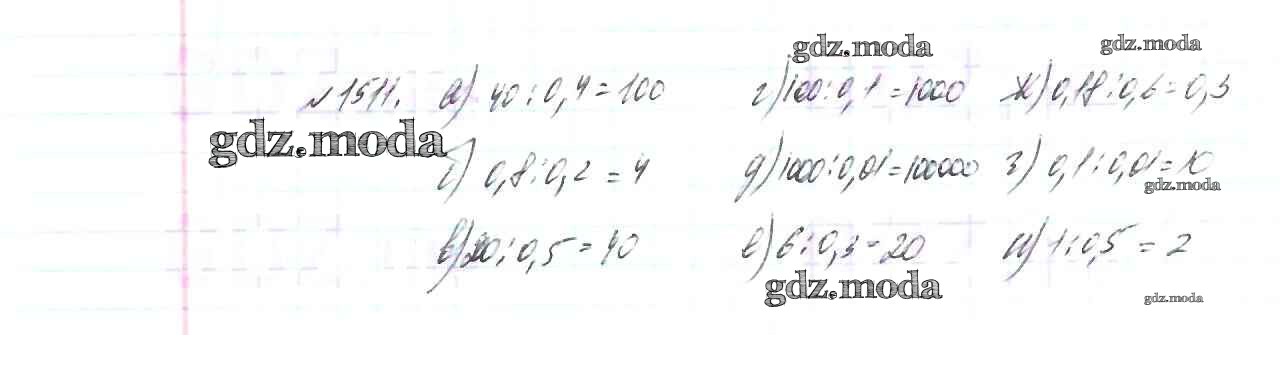 gdz.moda gdz.moda
№1511. а) 40:0,4=100 г) 100:0,1=1000 ж) 0,18:0,6=0,3
gdz.moda
б) 0,8:0,2=4 д) 1000:0,01=100000 з) 0,1:0,01=10
gdz.moda
в) 20:0,5=40 е) 6:0,3=20 и) 1:0,5=2
gdz.moda gdz.moda